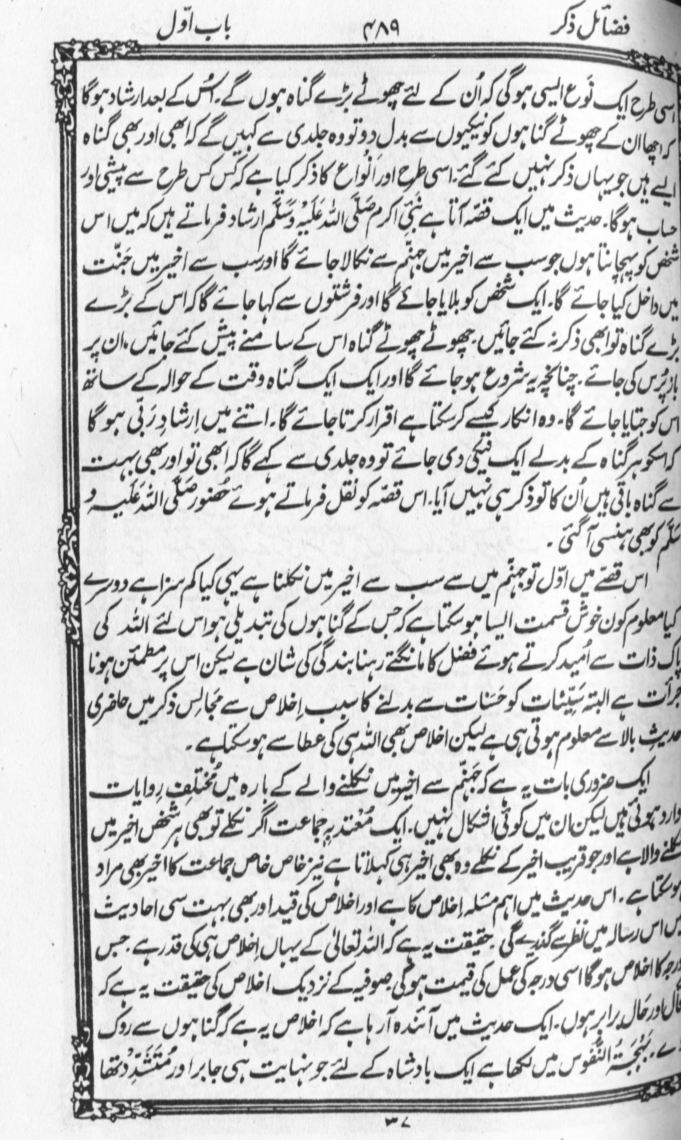 فضائل ذکر ۴۸۹ باب اوّل
اسی طرح ایک نَوع ایسی ہوگی کہ اُن کے لئے چھوٹے بڑے گناہ ہوں گے۔ اُس کے بعد ارشاد ہوگا
کہ اچھا ان کے چھوٹے گناہوں کو نیکیوں سے بدل دو تو وہ جلدی سے کہیں گے کہ ابھی اور بھی گناہ
ایسے ہیں جو یہاں ذکر نہیں کئے گئے، اسی طرح اور اَنواع کا ذکر کیا ہے کہ کس کس طرح سے پیشی اور
حساب ہوگا۔ حدیث میں ایک قصّہ آتا ہے نبیِّ اکرم صَلَّی اللہُ عَلَیْہِ وَسَلَّم ارشاد فرماتے ہیں کہ میں اس
شخص کو پہچانتا ہوں جو سب سے اخیر میں جہنّم سے نکالا جائے گا اور سب سے اخیر میں جَنّت
میں داخل کیا جائے گا۔ ایک شخص کو بلایا جائے گا اور فرشتوں سے کہا جائے گا کہ اس کے بڑے
بڑے گناہ تو ابھی ذکر نہ کئے جائیں، چھوٹے چھوٹے گناہ اس کے سامنے پیش کئے جائیں، ان پر
باز پُرس کی جائے۔ چنانچہ یہ شروع ہو جائے گا اور ایک ایک گناہ وقت کے حوالہ کے ساتھ
اس کو جتایا جائے گا۔ وہ انکار کیسے کر سکتا ہے اقرار کرتا جائے گا۔ اتنے میں اِرشادِ رَبّی ہوگا
کہ اسکو ہر گناہ کے بدلے ایک نیکی دی جائے تو وہ جلدی سے کہے گا کہ ابھی تو اور بھی بہت
سے گناہ باقی ہیں اُن کا تو ذکر ہی نہیں آیا۔ اس قصّہ کو نقل فرماتے ہوئے حُضور صَلَّی اللہُ عَلَیہِ و
سَلَّم کو بھی ہنسی آگئی۔
اس قصّے میں اوّل تو جہنّم میں سے سب سے اخیر میں نکلنا ہے یہی کیا کم سزا ہے دوسرے
کیا معلوم کون خوش قسمت ایسا ہو سکتا ہے کہ جس کے گناہوں کی تبدیلی ہو اس لئے اللہ کی
پاک ذات سے اُمید کرتے ہوئے فضل کا مانگتے رہنا بندگی کی شان ہے لیکن اس پر مطمئن ہونا
جرأت ہے البتہ سَیِّئات کو حَسَنات سے بدلنے کا سبب اِخلاص سے مَجالِس ذکر میں حاضری
حدیثِ بالا سے معلوم ہوتی ہی ہے لیکن اخلاص بھی اللہ ہی کی عطا سے ہو سکتا ہے۔
ایک ضروری بات یہ ہے کہ جَہَنّم سے اخیر میں نکلنے والے کے بارہ میں مُختلِف رِوایات
وارد ہوئی ہیں لیکن ان میں کوئی اشکال نہیں۔ ایک مُعْتَدبہ جماعت اگر نکلے تو بھی ہر شخص اخیر میں
نکلنے والا ہے اور جو قریب اخیر کے نکلے وہ بھی اخیر ہی کہلاتا ہے نیز خاص خاص جماعت کا اخیر بھی مراد
ہو سکتا ہے۔ اس حدیث میں اہم مسئلہ اخلاص کا ہے اور اخلاص کی قید اور بھی بہت سی احادیث
میں اس رسالہ میں نظر سے گذرے گی۔ حقیقت یہ ہے کہ اللہ تعالیٰ کے یہاں اِخلاص ہی کی قدر ہے۔ جس
درجہ کا اخلاص ہوگا اسی درجہ کی عمل کی قیمت ہوگی صوفیہ کے نزدیک اخلاص کی حقیقت یہ ہے کہ
قال اور حَال برابر ہوں۔ ایک حدیث میں آئندہ آرہا ہے کہ اخلاص یہ ہے کہ گناہوں سے روک
دے۔ بَہْجَۃُ النُّفُوس میں لکھا ہے ایک بادشاہ کے لئے جو نہایت ہی جابر اور مُتَشَدِّد تھا
۳۷